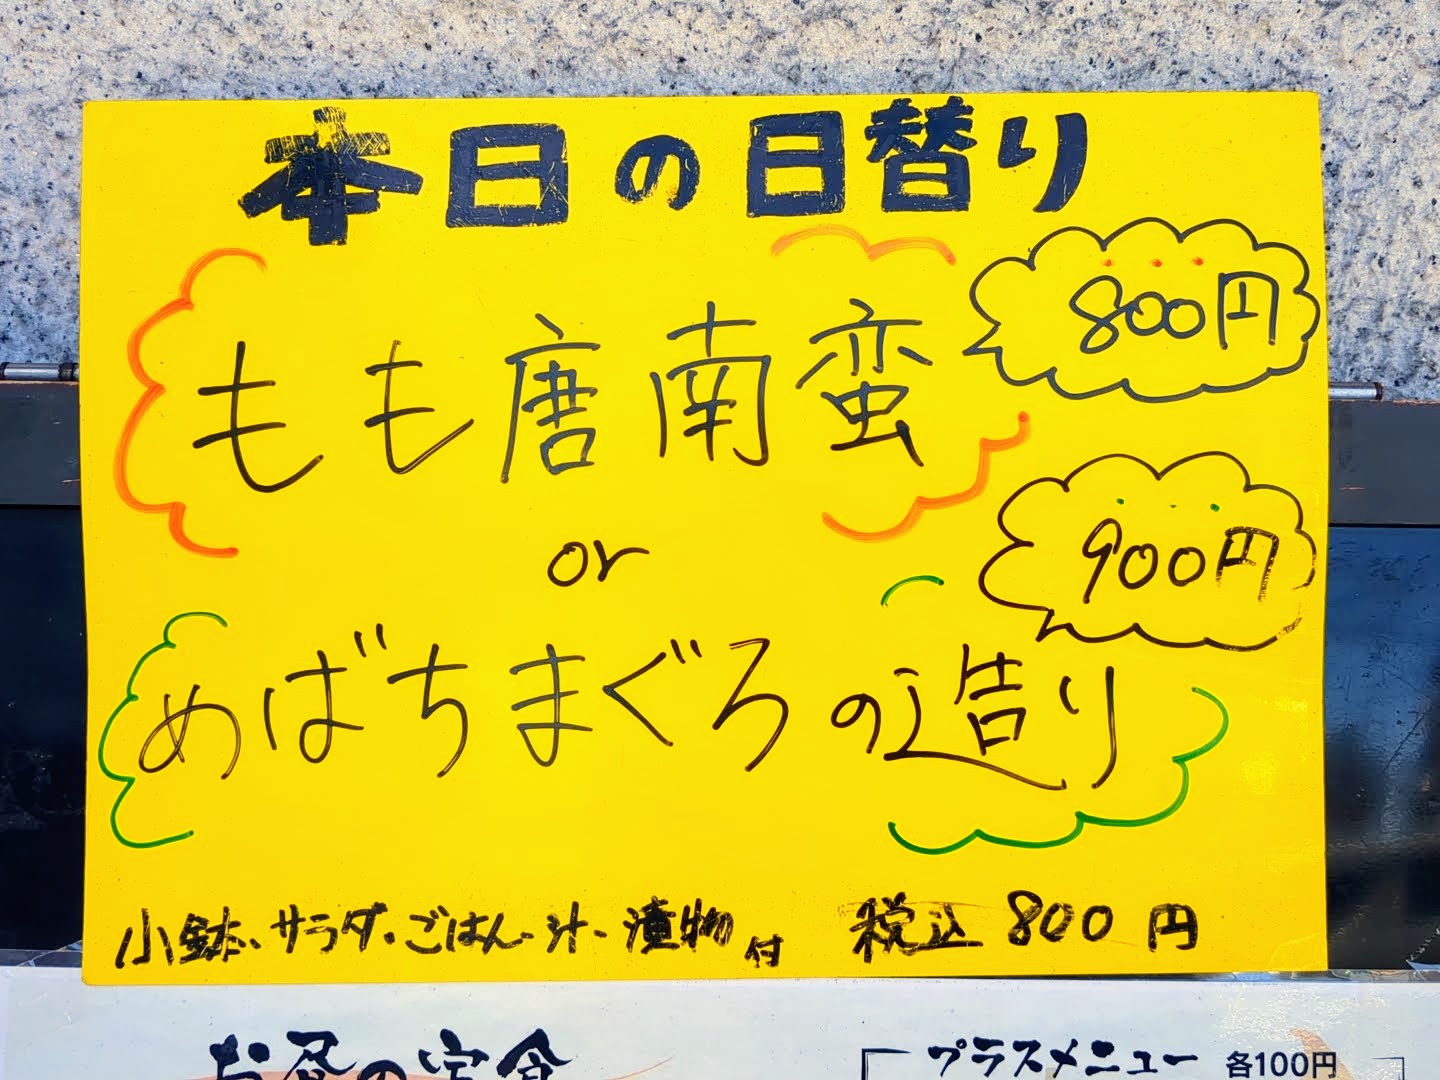 本日の日替り
800円
もも唐南蛮
or
900円
めばちまぐろの造り
小鉢・サラダ・ごはん・汁・漬物付 税込800円
お昼の定食
プラスメニュー 各100円